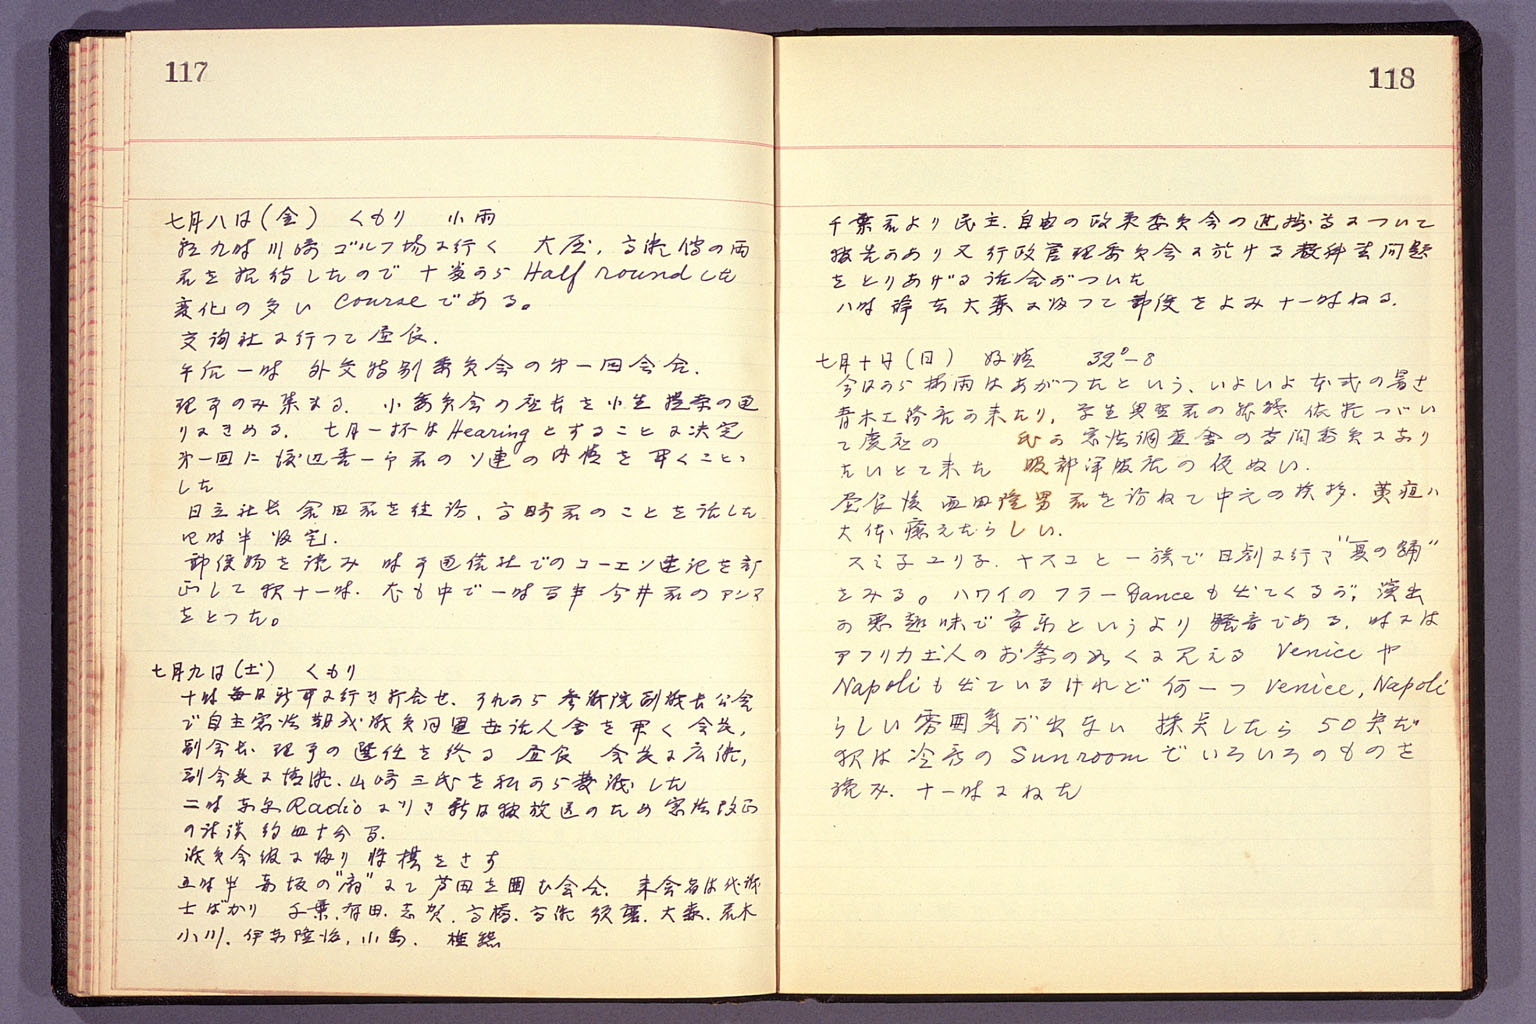 117
七月八日(金) くもり 小雨
前九時川崎ゴルフ場に行く 大屋,高瀬の両
君を招待したので Half roundした
変化の多い Courseである。
交詢社に行つて昼食.
午后一時 外交特別委員会の第一回会合.
理事のみ集まる. 小委員会の座長を小生 提案の通
りにきめる. 七月一杯はHearingとすることに決定
第一回に 君のソ連の内情を聞くことゝ
した
日立社長 倉田君を往訪, 高崎君のことを話した
四時半 帰宅.
郵便物を読み 時事通信社でのコーエン速記を訂
正して 夜十一時. 一時間半 今井君のアンマ
をとつた。
七月九日(土) くもり
十時毎日新聞に行き打合せ. それから参議院副議長公舎
で自主憲法期成議員同盟世話人会を開く 会長,
副会長 理事の選任を終る 昼食 会長に広瀬,
副会長に 山崎三氏を私から
二時 Radioに行き 放送のため憲法改正
の対談 約四十分間.
議員会館に帰り 将棋をさす
五時半 にて芦田を囲む会合. 来会者は代議
士ばかり 千葉.有田.志賀.高橋.高瀬 須磨.大森.荒木
小川.伊東隆治.小島.
118
千葉君より民主.自由の政策委員会の進捗等について
報告あり又 行政管理委員会に於ける教科書問題
をとりあげる話合がついた
八時 辞去 大森に帰つて郵便をよみ十一時ねる.
七月十日(日) 好晴 32°-8
今日から梅雨はあがつたという, いよいよ本式の暑さ
青木工務店の来たり, 学生 君の 依
て 氏の憲法調査会の専門委員にあり
たいとて来た 服部 の使
昼食後 西田隆男君を訪ねて中元の挨拶. 黄疸ハ
大体癒えたらしい.
スミ子ユリ子. ヤスコと一族で日劇に行き"夏の踊"
をみる。 ハワイのフラーDanceも出てくるが, 演出
が悪趣味で音楽というより騒音である. 時には
アフリカ土人のお祭の如くに見える Veniceや
Napoliも出ているけれど何一つ Venice, Napoli
らしい雰囲気が出ない 採点したら 50点だ
夜は冷房の Sunroomでいろいろのものを
読み. 十一時にねた